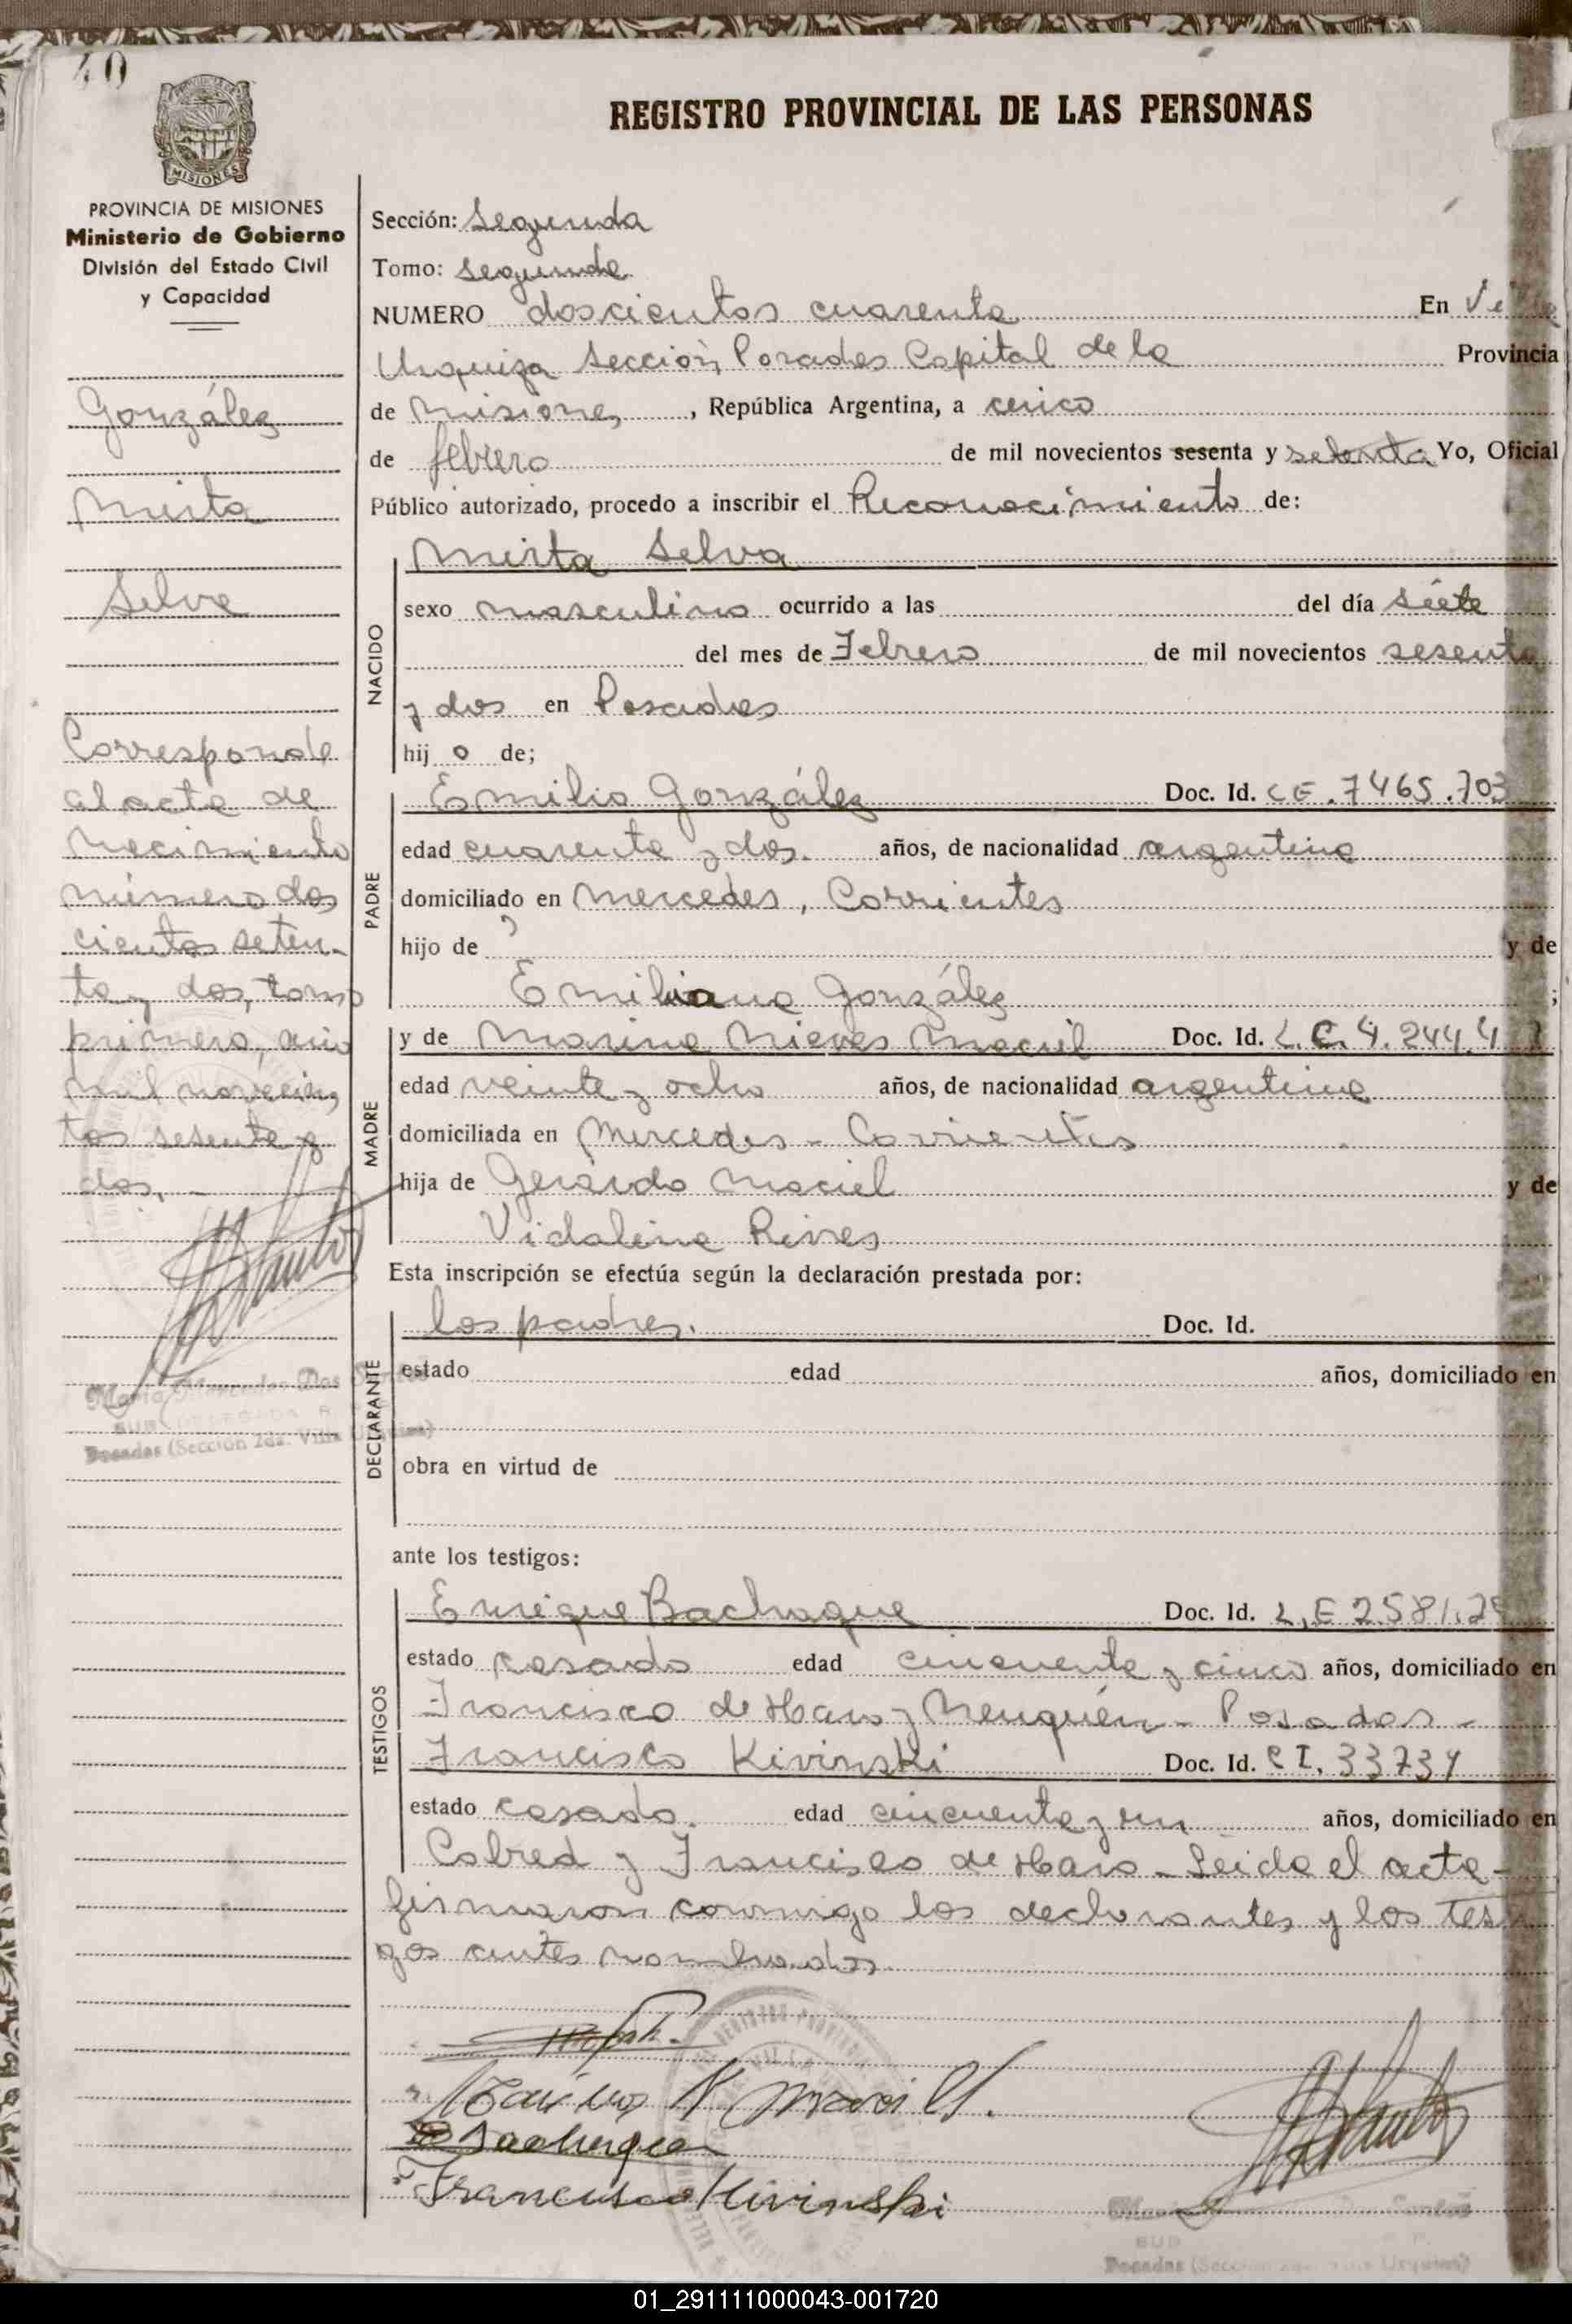 40
REGISTRO PROVINCIAL DE LAS PERSONAS
MISIONES
PROVINCIA DE MISIONES
Ministerio de Gobierno
División del Estado Civil
y Capacidad
González
Mirta
Selva
Corresponde
al acta de
Nacimiento
número dos
cientos seten-
ta y dos, tomo
primero, año
mil novecien
tos sesenta y
dos. -
Posadas (Sección 2da. Villa
Sección: Segunda
Tomo: segundo
NUMERO doscientos cuarenta En Villa
Urquiza Sección Posadas Capital de la Provincia
de Misiones, República Argentina, a cinco
de febrero de mil novecientos sesenta y setenta Yo, Oficial
Público autorizado, procedo a inscribir el Reconocimiento de:
NACIDO
Mirta Selva
sexo masculino ocurrido a las del día siete
del mes de Febrero de mil novecientos sesenta
y dos en Posadas
hij o de;
PADRE
Emilio González Doc. Id. 7465.703
edad cuarenta y dos. años, de nacionalidad argentina
domiciliado en Mercedes, Corrientes
hijo de y de
Emiliana González ;
MADRE
y de Marina Nieves Maciel Doc. Id. L.C. 4.244.4
edad veinte y ocho años, de nacionalidad argentina
domiciliada en Mercedes - Corrientes
hija de Gerardo Maciel y de
Vidalina
Esta inscripción se efectúa según la declaración prestada por:
DECLARANTE
los padres. Doc. Id.
estado edad años, domiciliado en
obra en virtud de
ante los testigos:
TESTIGOS
Enrique Bachaque Doc. Id. L.E 2.581.2
estado casado edad cincuenta y cinco años, domiciliado en
Francisco de Haro y Neuquén - Posadas -
Francisco Kivinski Doc. Id. C I. 33734
estado casado. edad cincuenta y un años, domiciliado en
Cabred y Francisco de Haro - Leída el acta -
firmaron conmigo los declarantes y los testi
gos antes nombrados.
Francisco Kivinski
Posadas
01_291111000043-001720